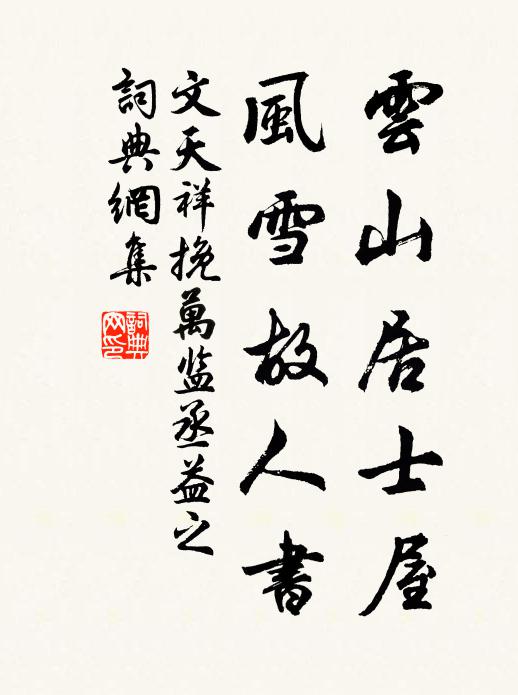 雲山居士屋
風雪故人書
文天祥挽萬监丞益之
詞典網集
詞典網印